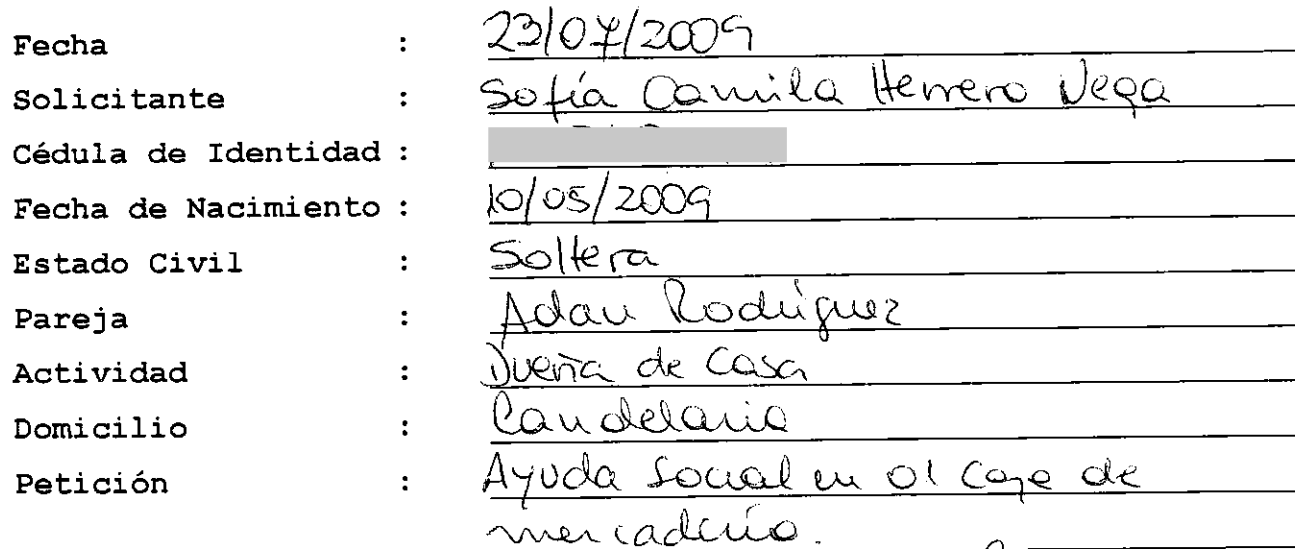 Fecha : 23/07/2009
Solicitante : Sofía Camila Herrero Vega
Cédula de Identidad :
Fecha de Nacimiento : 10/05/2009
Estado Civil : Soltera
Pareja : Adan Rodríguez
Actividad : Dueña de Casa
Domicilio : Candelaria
Petición : Ayuda Social en de
mercadería.